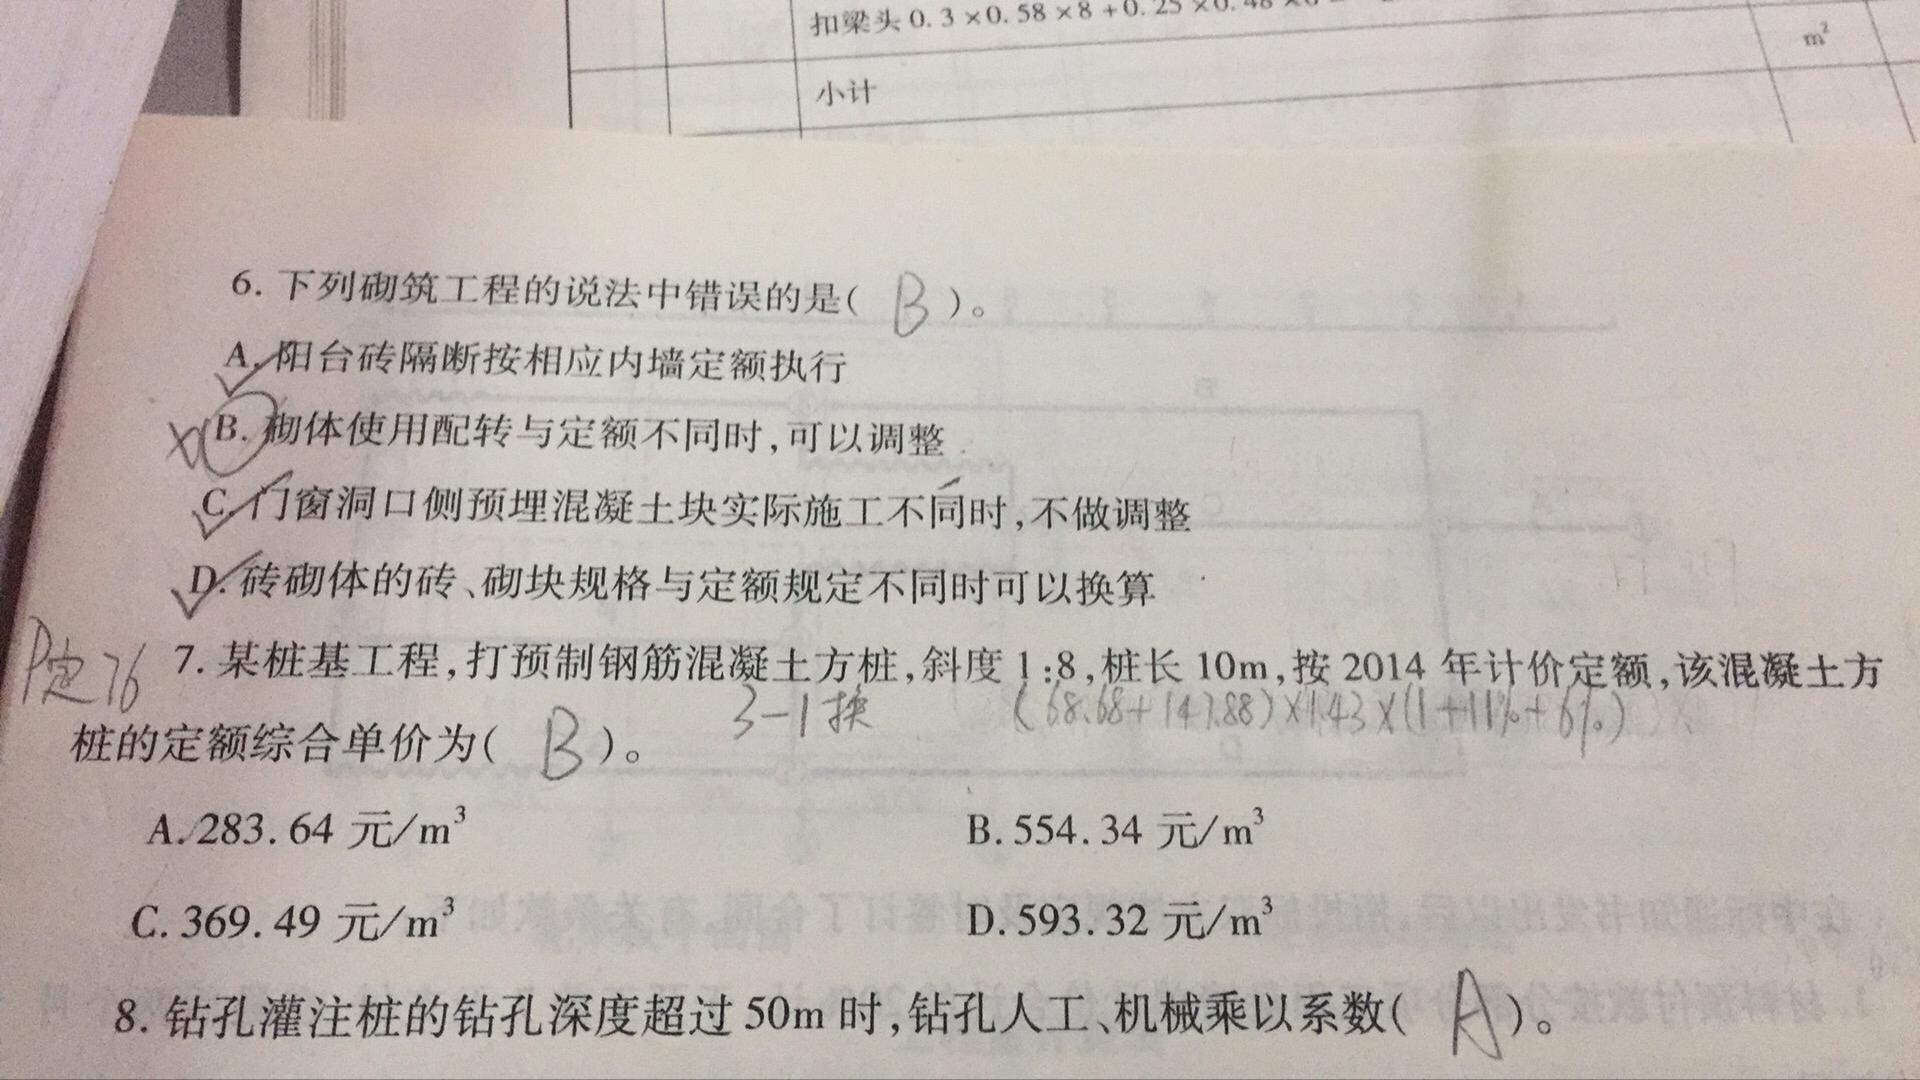 扣梁头0.3×0.58×8+0.25×0.48×6
m²
小计
6. 下列砌筑工程的说法中错误的是( B )。
A. 阳台砖隔断按相应内墙定额执行
B. 砌体使用配转与定额不同时,可以调整
C. 门窗洞口侧预埋混凝土块实际施工不同时,不做调整
D. 砖砌体的砖、砌块规格与定额规定不同时可以换算
P定76
7. 某桩基工程,打预制钢筋混凝土方桩,斜度1:8,桩长10m,按2014年计价定额,该混凝土方
3-1换 (68.68+147.88)×1.43×(1+11%+6%)
桩的定额综合单价为( B )。
A. 283.64 元/m³ B. 554.34 元/m³
C. 369.49 元/m³ D. 593.32 元/m³
8. 钻孔灌注桩的钻孔深度超过50m时,钻孔人工、机械乘以系数( A )。